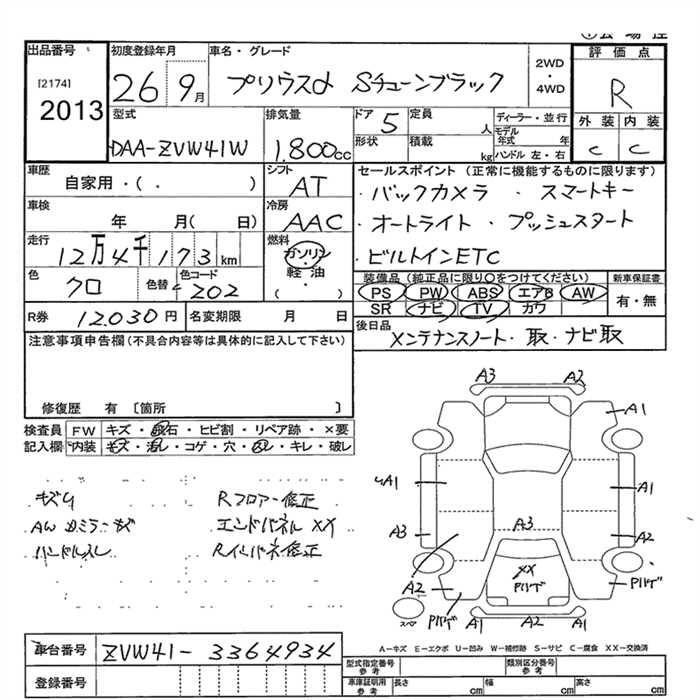 出品番号
[2174]
2013
初度登録年月
26 9月
車名・グレード
プリウスα Sチューンブラック
2WD
・
4WD
評価点
R
外装 内装
C C
型式
DAA-ZVW41W
排気量
1.800cc
ドア 5
形状
定員 人
積載 kg
ディーラー・並行
モデル年式 年
ハンドル 左・右
車歴
自家用・( . )
シフト
AT
車検
年 月( 日)
冷房
AAC
走行
12万4千173km
燃料
ガソリン
・
軽油
( )
色
クロ
色替
色コード
202
セールスポイント (正常に機能するものに限ります)
・バックカメラ ・スマートキー
・オートライト ・プッシュスタート
・ビルトインETC
装備品(純正品に限り〇をつけてください)
PS PW ABS エアB AW
SR ナビ TV カワ
新車保証書
有・無
R券 12.030円
名変期限 月 日
後日品
メンテナンスノート・取・ナビ取
注意事項申告欄(不具合内容等は具体的に記入して下さい)
修復歴 有 [箇所 ]
検査員記入欄
FW キズ・飛石・ヒビ割・リペア跡・×要
内装 キズ・汚し・コゲ・穴・スレ・キレ・破し
キズU
AW ロミラーキズ
ハンドルスレ
Rフロアー修正
エンドパネルXX
Rインパネ修正
A3 A2
A1
A1
A1
A3
A3
A2
A2
XX
Pハゲ
Pハゲ
Pハゲ
スペア
A1 A2 A1
A-キズ E-エクボ U-凹み W-補修跡 S-サビ C-腐食 XX-交換済
車台番号 ZVW41-3364934
登録番号
型式指定番号 参考
類別区分番号 参考
車庫証明用 参考
長さ cm
幅 cm
高さ cm